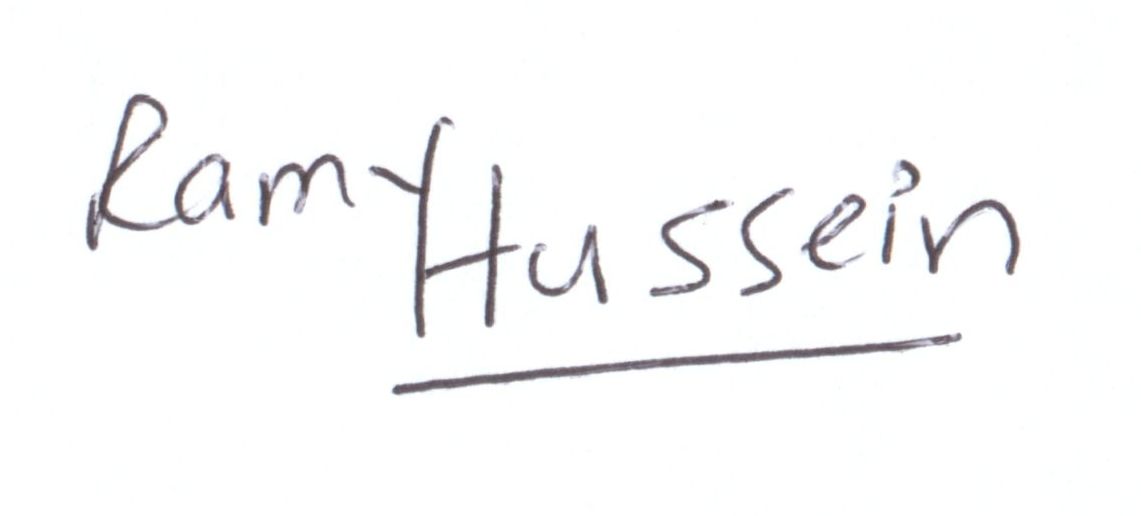 Ramy Hussein